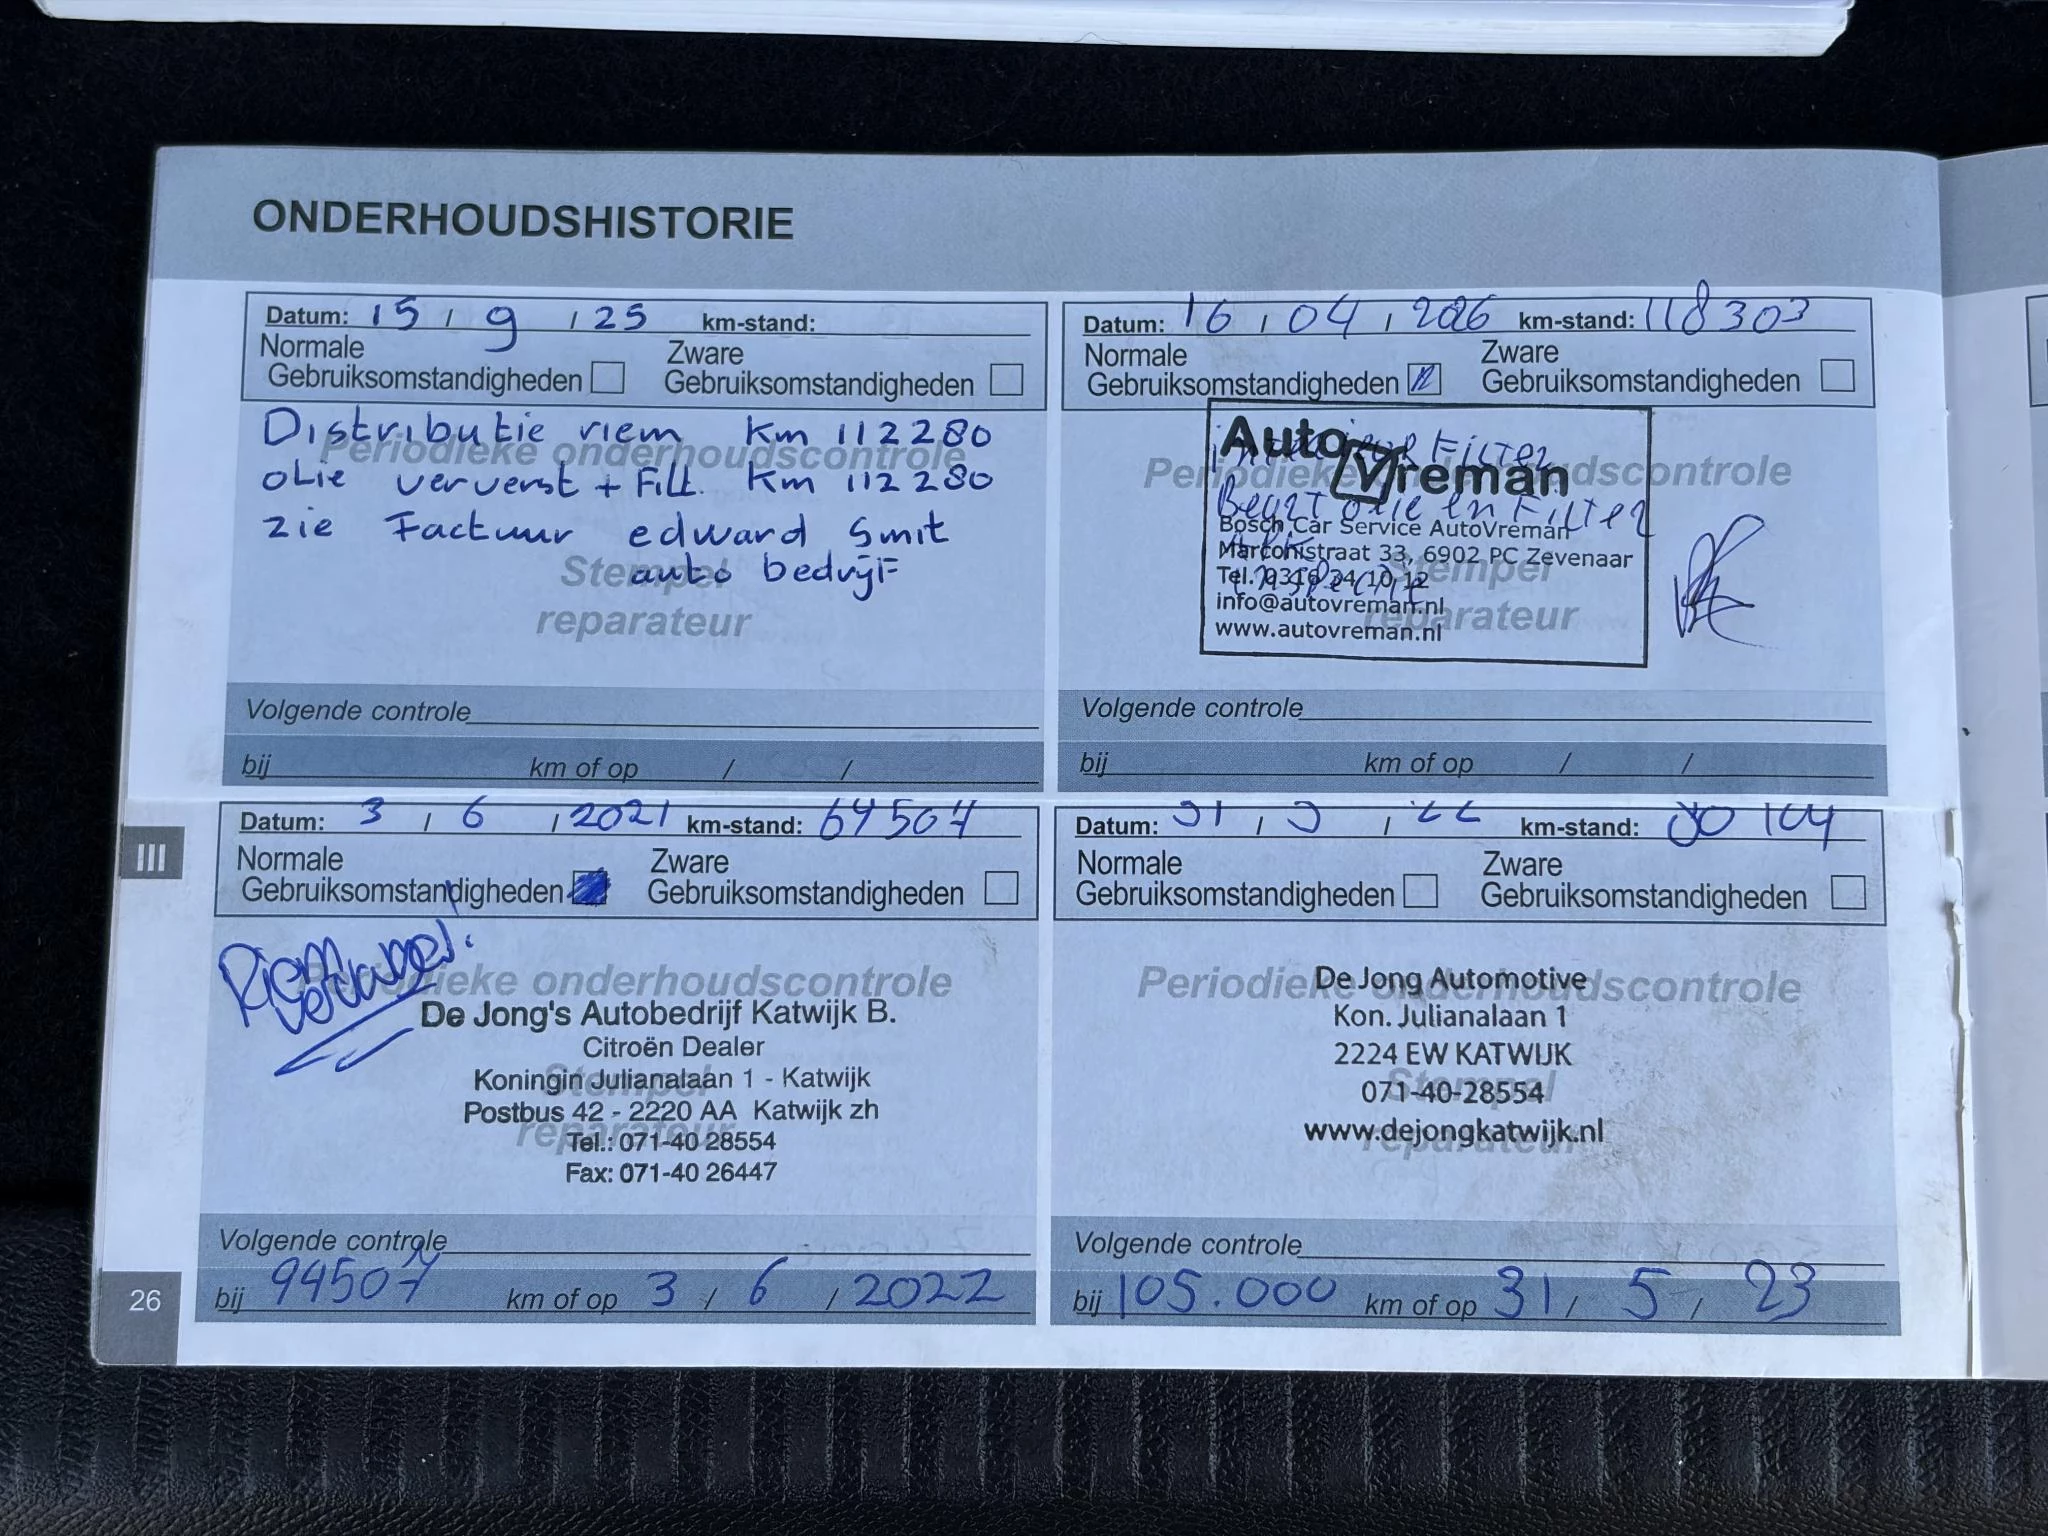 ONDERHOUDSHISTORIE
Datum: 15 / 9 / 25 km-stand:
Normale Gebruiksomstandigheden
Zware Gebruiksomstandigheden
Distributie riem Km 112280
Periodieke onderhoudscontrole
olie ververst + Filt. Km 112280
zie Factuur edward Smit
auto bedrijf
Stempel
reparateur
Volgende controle
bij km of op / /
Datum: 16 / 04 / km-stand: 118303
Normale Gebruiksomstandigheden
Zware Gebruiksomstandigheden
AutoVreman
interieur Filter
Periodieke onderhoudscontrole
olie en Filter
Bosch Car Service AutoVreman
Marconistraat 33, 6902 PC Zevenaar
Tel. 0316 34 10 12
Stempel
info@autovreman.nl
reparateur
www.autovreman.nl
Volgende controle
bij km of op / /
III
Datum: 3 / 6 / 2021 km-stand: 64507
Normale Gebruiksomstandigheden
Zware Gebruiksomstandigheden
Periodieke onderhoudscontrole
De Jong's Autobedrijf Katwijk B.
Citroën Dealer
Koningin Julianalaan 1 - Katwijk
Stempel
Postbus 42 - 2220 AA Katwijk zh
reparateur
Tel.: 071-40 28554
Fax: 071-40 26447
Volgende controle
bij 94507 km of op 3 / 6 / 2022
Datum: 31 / 5 / 22 km-stand:
Normale Gebruiksomstandigheden
Zware Gebruiksomstandigheden
De Jong Automotive
Periodieke onderhoudscontrole
Kon. Julianalaan 1
2224 EW KATWIJK
Stempel
071-40-28554
www.dejongkatwijk.nl
reparateur
Volgende controle
bij 105.000 km of op 31 / 5 / 23
26